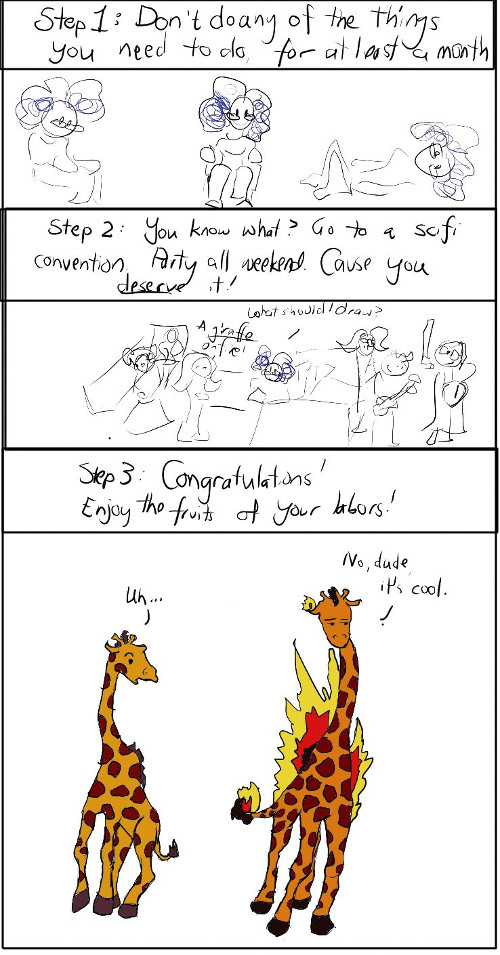 Step 1: Don't do any of the things
you need to do, for at least a month
Step 2: You know what? Go to a scifi
convention. Party all weekend. Cause you
deserve it!
What should I draw?
A giraffe
on fire!
Step 3: Congratulations!
Enjoy the fruits of your labors!
No, dude,
it's cool.
Uh...